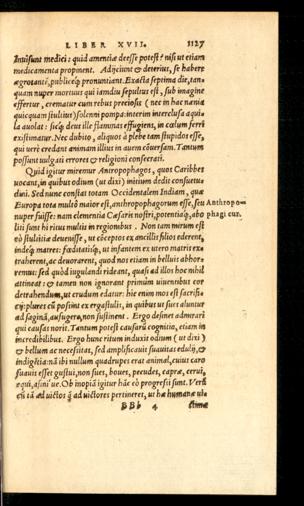 LIBER XVII. 1127
Inuisunt medici: quid amentiæ deesse potest? nisi ut etiam
medicamenta propinent. Adijciunt & deterius, se habere
ægrotantē, publiceq́; pronuntiant. Exacta septima die, tan-
quam nuper mortuus qui iamdiu sepultus est, sub imagine
effertur, crematur cum rebus preciosis (net in hac nænia
quicquam stultius) solenni pompa: interim interclusa aqui-
la auolat: sicq́; deus ille flammas effugiens, in cœlum ferri
existimatur. Nec dubito, aliquos à plebe tam stupidos esse,
qui uerè credant animam illius in auem cōuersam. Tantum
possunt uulgati errores & religioni consecrati.
Quid igitur miremur Anthropophagos, quos Caribbes
uocant, in quibus odium (ut dixi) initium dedit consuetu-
dini. Sed nunc constat totam Occidentalem Indiam, quæ
Europa tota multò maior est, anthropophagorum esse, seu Anthropo=
nuper fuisse: nam clementia Cæsaris nostri, potentiaq́;, abo phagi cur.
liti sunt hi ritus multis in regionibus. Non tam mirum est
eò stultitiæ deuenisse, ut cōceptos ex ancillis filios ederent,
indeq́; matres: fœditatisq́;, ut infantem ex utero matris ex=
traherent, ac deuorarent, quod nos etiam in belluis abhor-
remus: sed quòd iugulandi rideant, quasi ad illos hoc nihil
attineat: & tamen non ignorant primùm uiuentibus cor
detrahendum, ut crudum edatur: hic enim mos est sacrifi=
cij: plures cū possint ex ergastulis, in quibus ut sues aluntur
ad saginā, aufugere, non sustinent. Ergo desinet admirari
qui causas norit. Tantum potest causarū cognitio, etiam in
incredibilibus. Ergo hunc ritum induxit odium (ut dixi)
& bellum ac necessitas, sed amplificauit suauitas edulij, &
indigētia: nā ibi nullum quadrupes erat animal, cuius caro
suauis esset gustui, non sues, boues, pecudes, capræ, cerui,
equi, asini ue. Ob inopiā igitur hāc eò progressi sunt. Verū
BBb 4